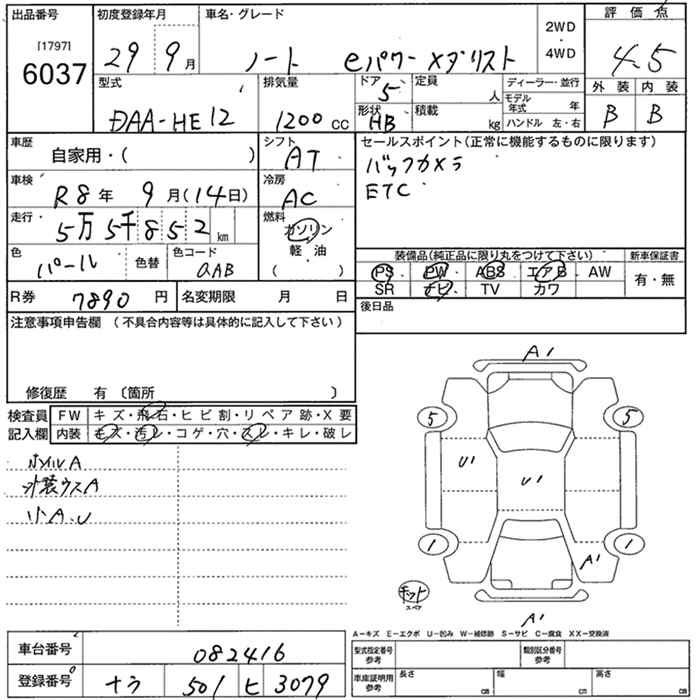 出品番号 初度登録年月 車名・グレード 2WD ・ 4WD 評価点
[1797]
6037 29 9月 ノート eパワーメダリスト 4.5
型式 排気量 ドア 5 定員 人 ディーラー・並行 外装 内装
DAA-HE12 1200cc 形状 HB 積載 kg モデル年式 年 B B
ハンドル 左・右
車歴 自家用・( ) シフト AT セールスポイント(正常に機能するものに限ります)
車検 R8年 9月(14日) 冷房 AC バックカメラ
ETC
走行 5万5千852km 燃料 ガソリン 軽・油 ( )
色 パール 色替 色コード QAB
装備品(純正品に限り丸をつけて下さい) 新車保証書
PS・PW・ABS・エアB・AW 有・無
SR ナビ・TV カワ
R券 7890円 名変期限 月 日 後日品
注意事項申告欄 (不具合内容等は具体的に記入して下さい)
修復歴 有 〔箇所 〕
検査員 FW キズ・飛石・ヒビ割・リペア跡・X要
記入欄 内装 キズ・汚レ・コゲ・穴・スレ・キレ・破レ
ホイルA
外装ウスA
小A.U
A1
5 5
U1 U1
1 1
A1
スペア
A1
A-キズ E-エクボ U-凹み W-補修跡 S-サビ C-腐食 XX-交換済
車台番号 082416
型式指定番号 参考 類別区分番号 参考
登録番号 ナラ 501 ヒ 3079
車庫証明用 参考 長さ cm 幅 cm 高さ cm